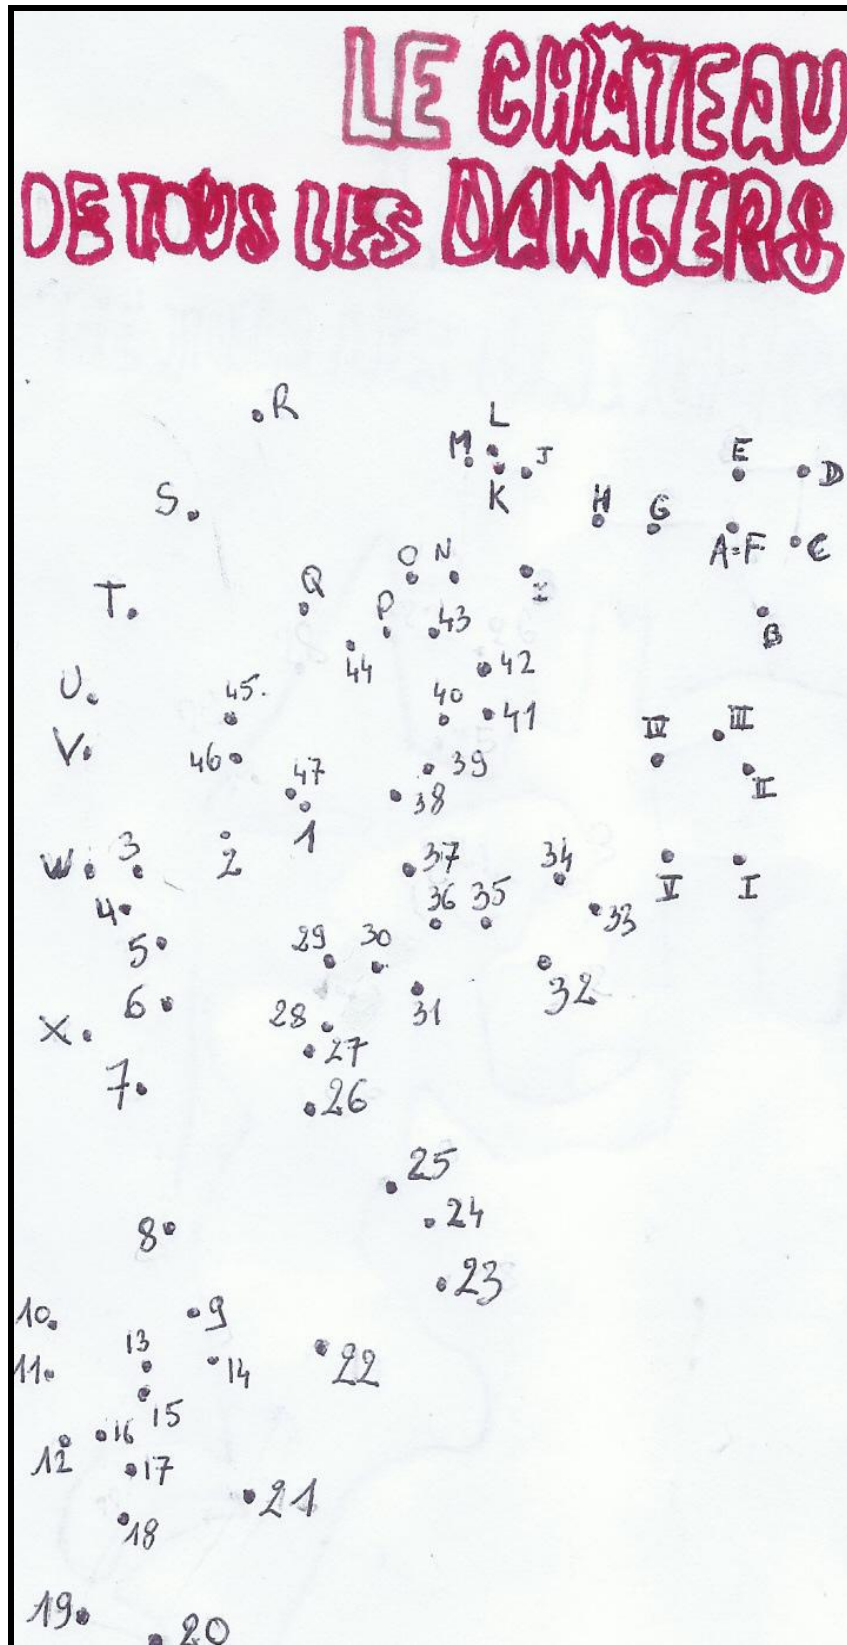 LE CHÂTEAU
DE TOUS LES DANGERS
R
L
M J
E D
K
S H G
A=F C
O N
Q I
T P 43 B
44 42
U 45. 40 41 IV III
V 46 39 II
47 38
1
2
W 3 37 34 V I
4 36 35 33
5 29 30
6 32
X 28 31
27
7 26
25
8 24
23
10 9
13 22
11 14
15
16
12 17
21
18
19 20